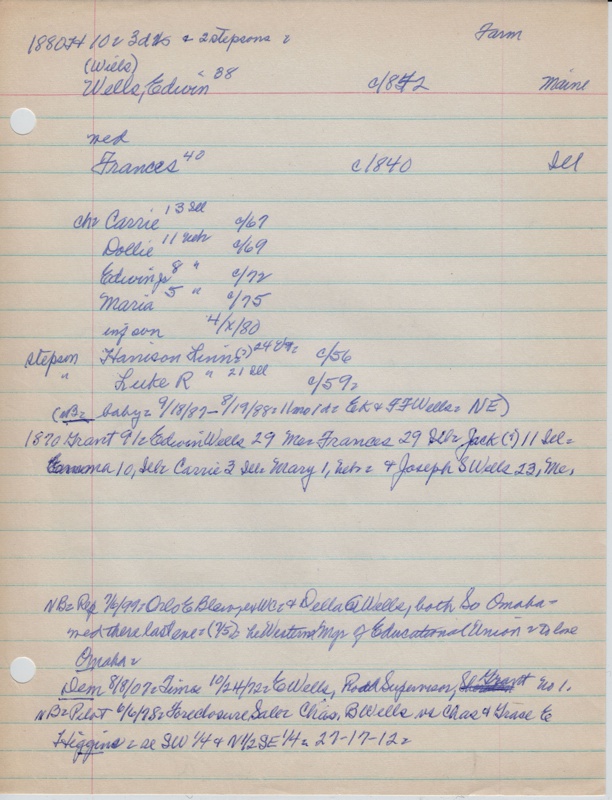 1880 Ft 10= 3ds & 2 stepsons = Farm
(Wiels)
Wells, Edwin 38 c/1842 Maine
med
Frances 40 c1840 Ill
ch= Carrie 13 Ill c/67
Dollie 11 Nebr c/69
Edwing 8 " c/72
Maria 5 " c/75
inf son 4/x/80
stepson Harrison Linn(?) 24 c/56
" Luke R " 21 Ill c/59=
(NB= baby= 9/18/87-8/19/88= 11mo 1d= EK & FF Wells= NE)
1870 Grant 91= Edwin Wells 29 Me= Frances 29 Ill= Jack(?) 11 Ill=
Emma 10, Ill= Carrie 3 Ill= Mary 1, Nebr= & Joseph S Wells 23, Me.
NB= Rep 7/6/97= Orlo E & Della Wells, both So Omaha=
med there last eve= (7/5). he Western Mgr of Educational Union = to live
Omaha=
Dem 8/8/07= Times 10/24/72= E Wells, Road Supervisor, Grant No 1.
NB= Pilot 6/6/78= Foreclosure Sale= Chas. B Wells vs Chas & Grace E
Higgins = se SW 1/4 & N1/2 SE 1/4= 27-17-12=